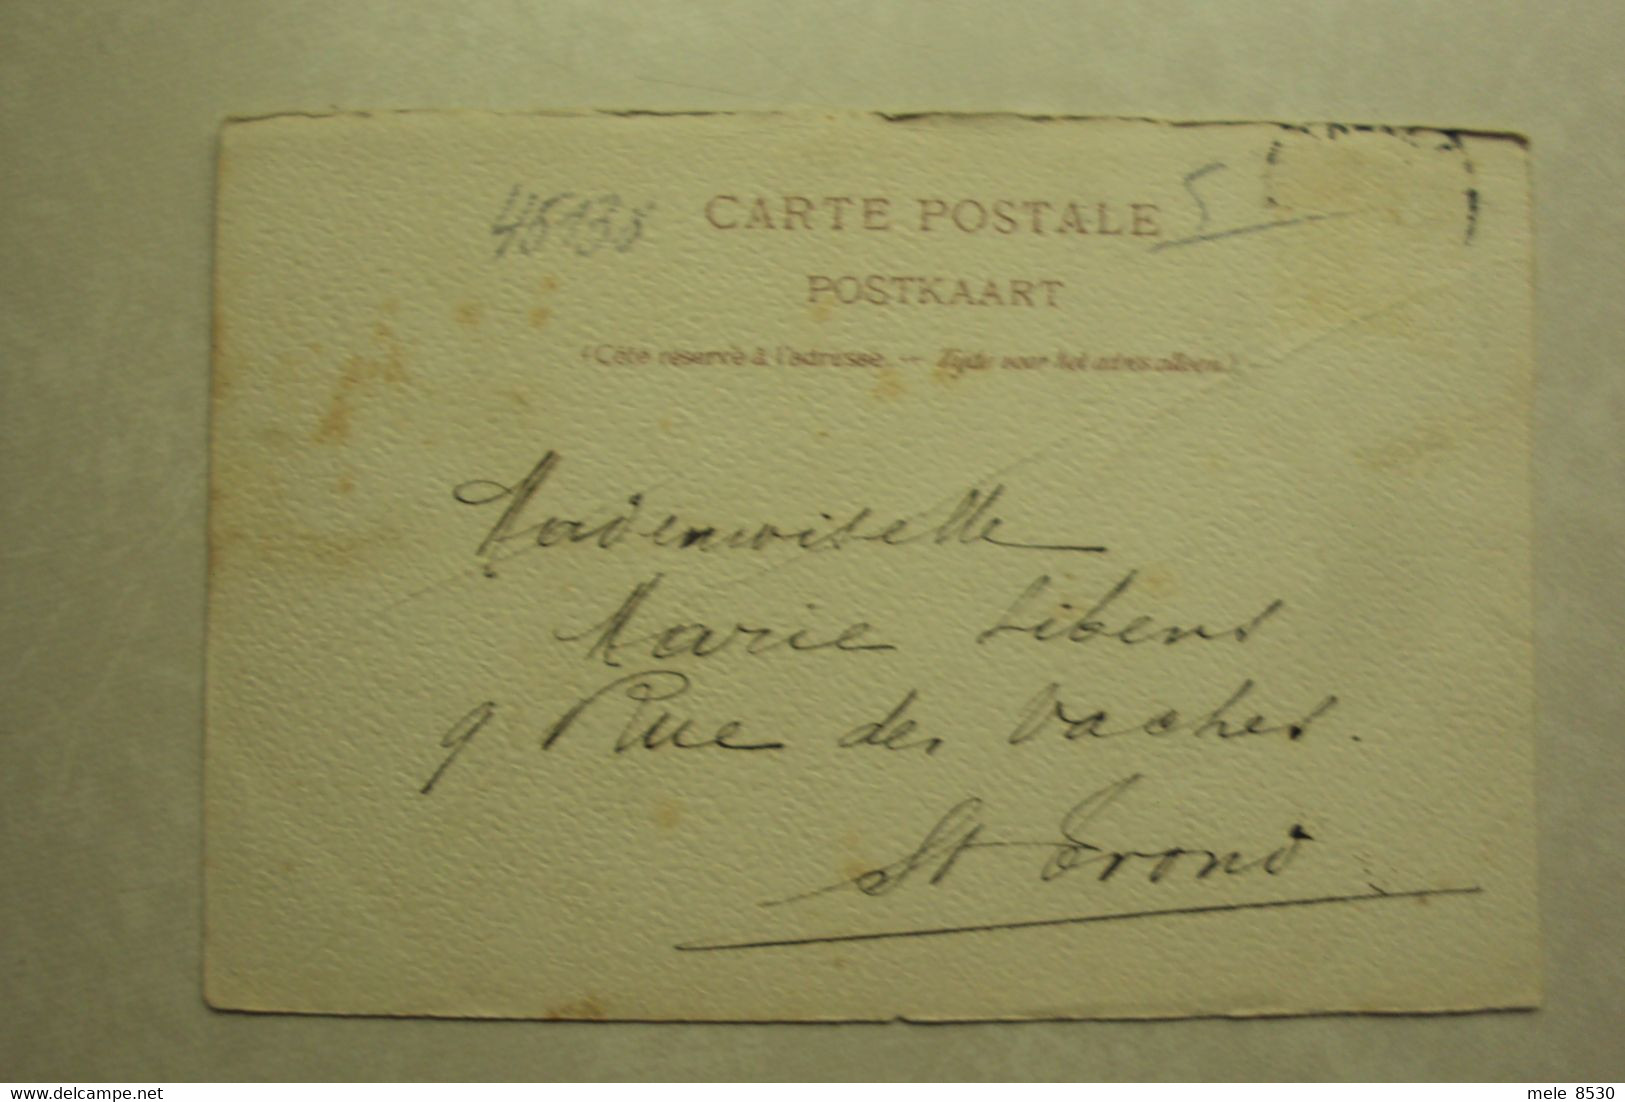 45135 CARTE POSTALE 5
POSTKAART
(Côté réservé à l'adresse. — Zijde voor het adres alleen.)
Mademoiselle
Marie Libens
9 Rue des Vaches.
St Trond
www.delcampe.net
mele 8530